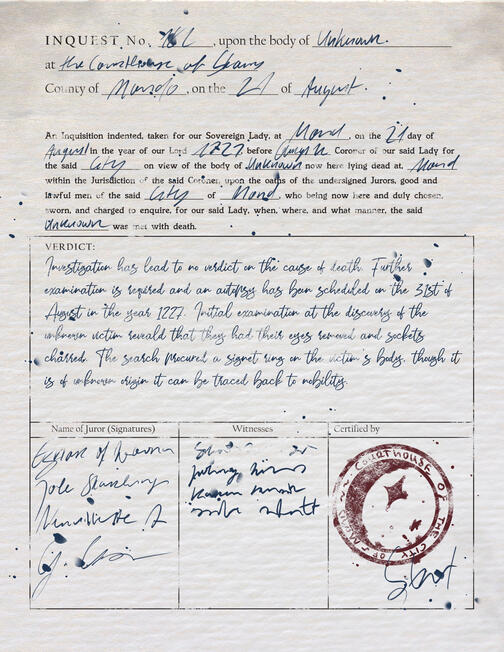 INQUEST No. , upon the body of Unknown.
at the Courthouse of
County of , on the 21 of August.
An Inquisition indented, taken for our Sovereign Lady, at , on the 21 day of
August in the year of our Lord 1227 before Coroner of our said Lady for
the said City on view of the body of Unknown now here lying dead at,
within the Jurisdiction of the said Coroner, upon the oaths of the undersigned Jurors, good and
lawful men of the said City of , who being now here and duly chosen,
sworn, and charged to enquire, for our said Lady, when, where, and what manner, the said
Unknown was met with death.
VERDICT:
Investigation has lead to no verdict on the cause of death. Further
examination is required and an autopsy has been scheduled on the 31st of
August in the year 1227. Initial examination at the discovery of the
unknown victim reveald that they had their eyes removed and sockets
charred. The search procured a signet ring on the victim's body, though it
is of unknown origin it can be traced back to nobility.
Name of Juror (Signatures)
Witnesses
Certified by
COURTHOUSE OF THE CITY OF